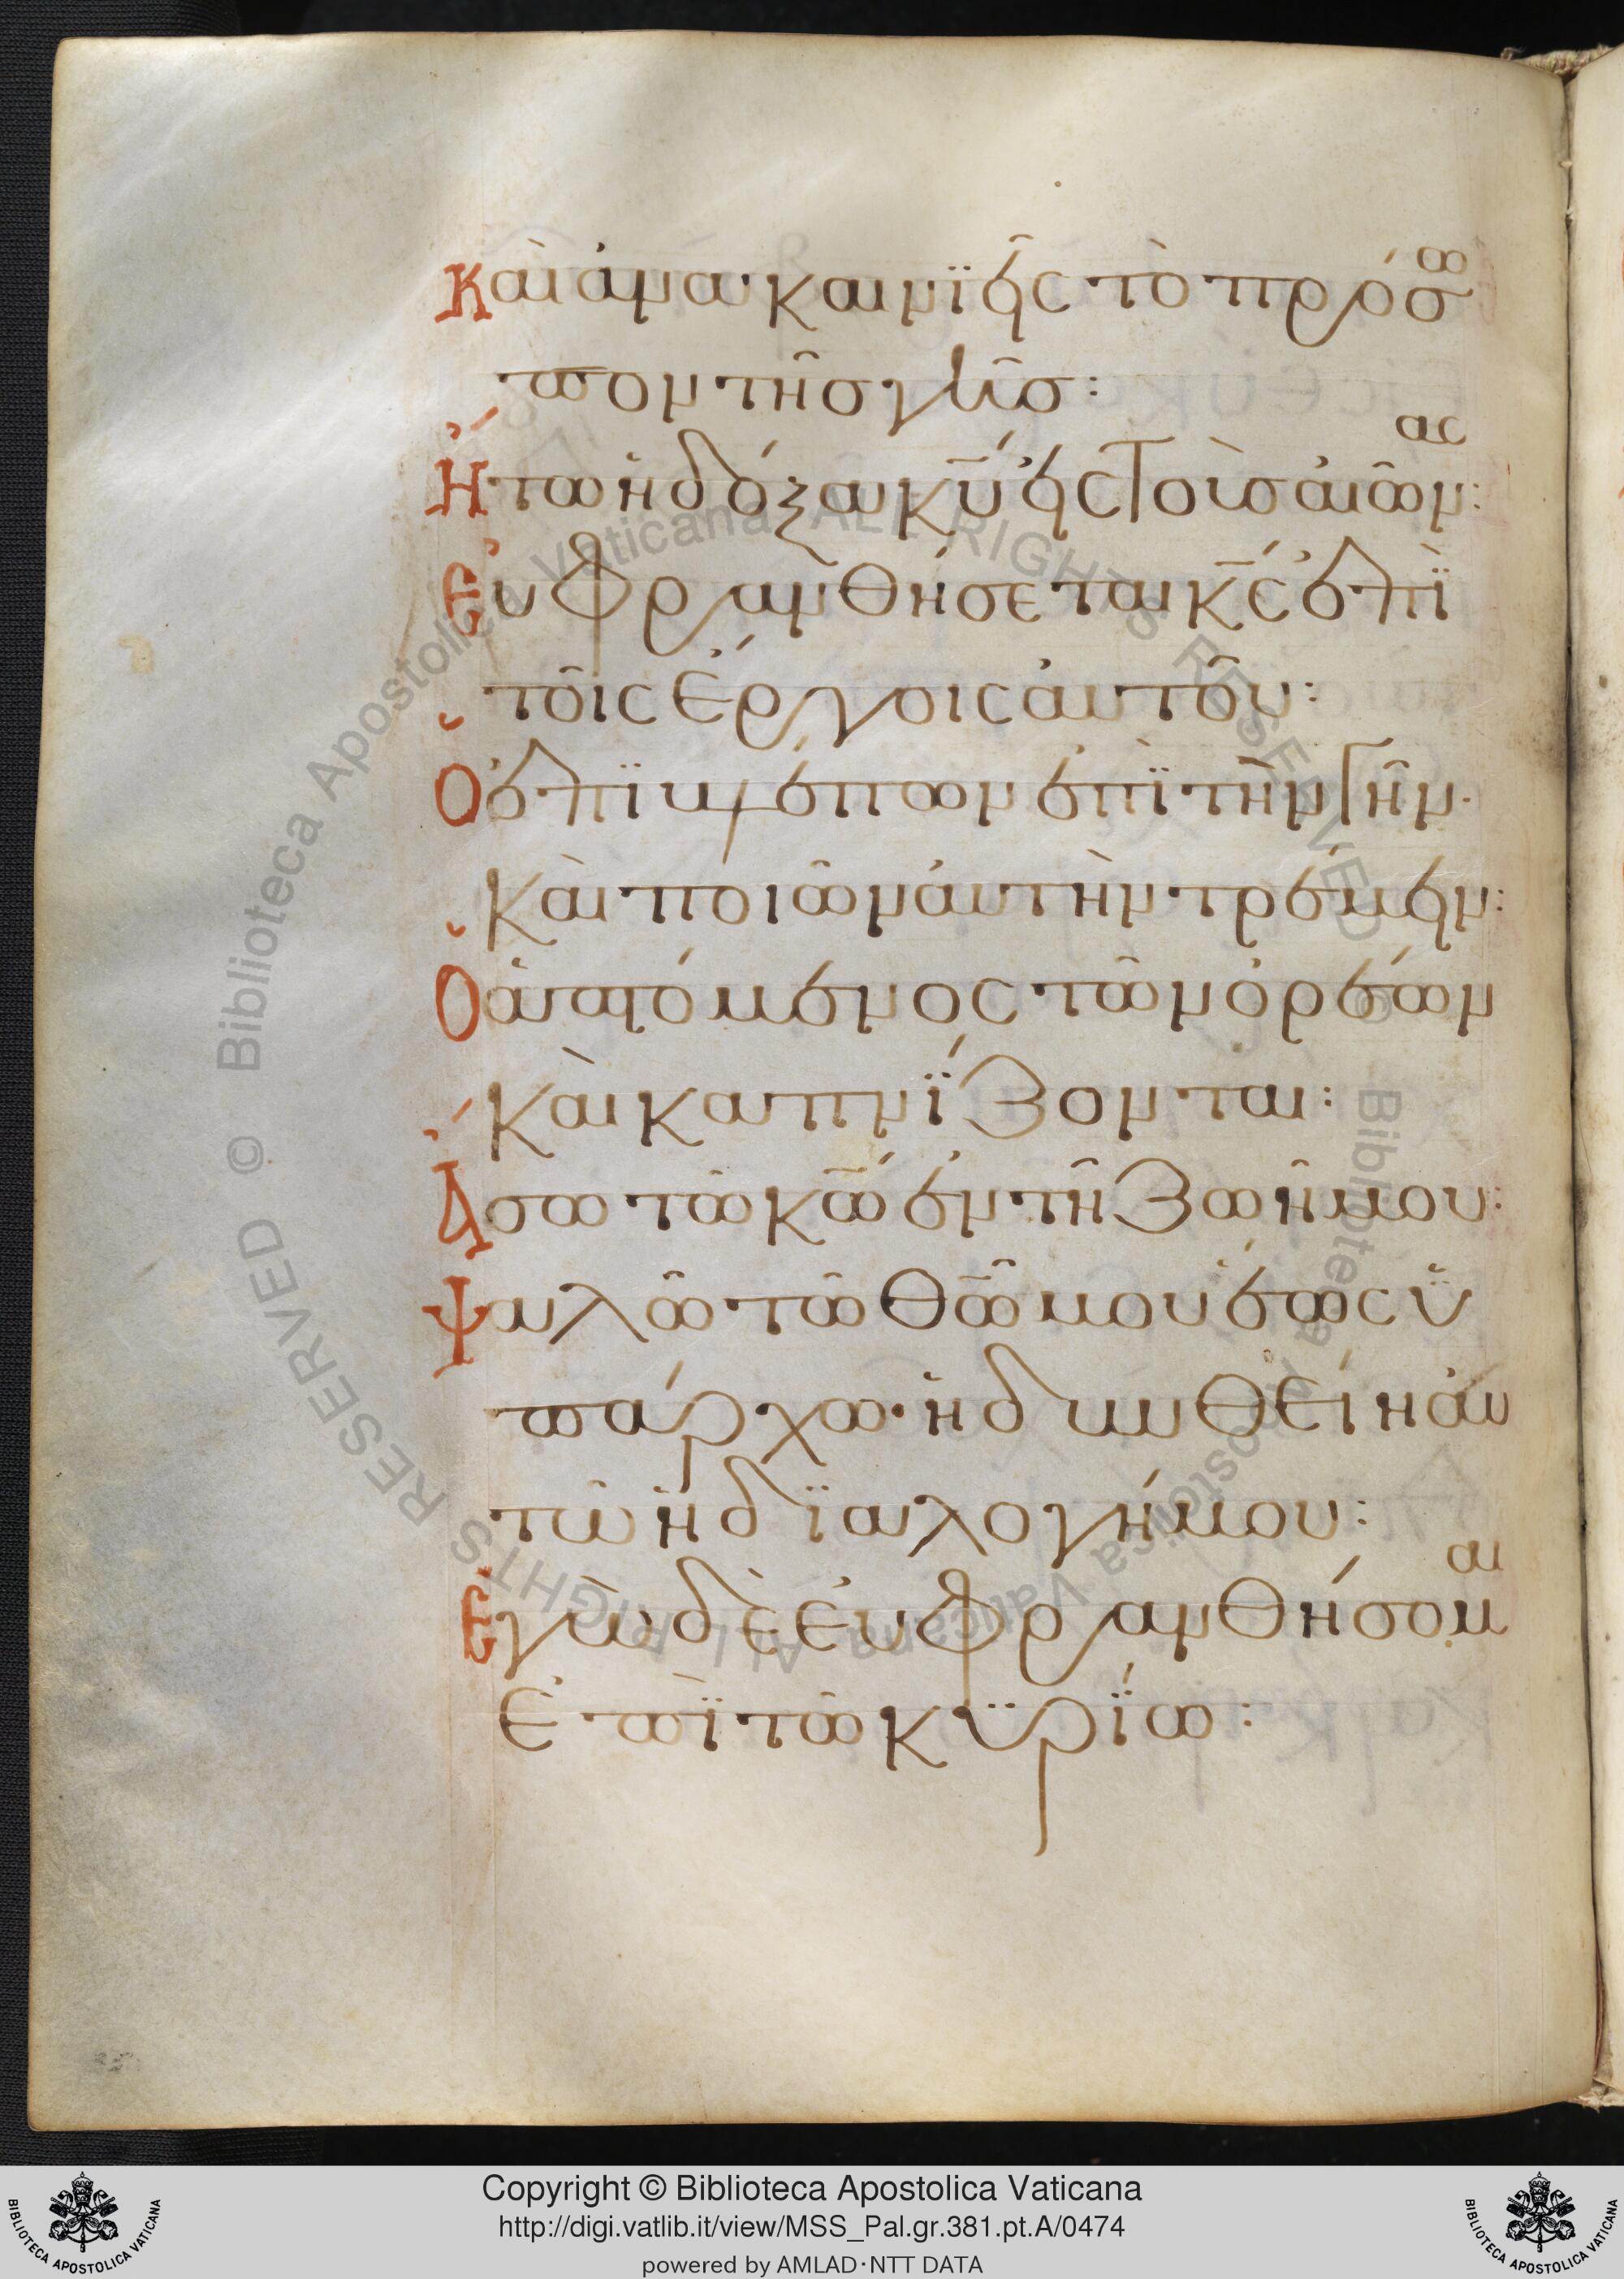 Καὶ ἀνακαινϊεῖς τὸ πρόσω
πον τῆσ γῆσ:
Ἤτω ἡ δόξα κ̅υ̅ εἰς τοὺσ αἰῶνας:
Εὐφρανθήσεται κ̅ς̅ ἐπῒ
τοῖς ἔργοις ἀυτοῦ:
Ὁ ἐπϊβλέπων ἐπῒ τὴν γῆν·
Καὶ ποιῶν ἀυτὴν τρέμειν:
Ὁ ἁπτόμενος τῶν ὀρέων
Καὶ καπνΐζονται:
Ἄσω τῶ κ̅ω̅ ἐν τῆ ζωῆ μου:
Ψαλῶ τῶ θ̅ω̅ μου ἕως ὑ
πάρχω· ἡδυνθείη ἀυ
τῶ ἡ δϊαλογή μου:
Ἐγὼ δὲ ἐυφρανθήσομαι
Ἐπῒ τῶ κϋρΐω:
Copyright © Biblioteca Apostolica Vaticana
http://digi.vatlib.it/view/MSS_Pal.gr.381.pt.A/0474
powered by AMLAD·NTT DATA
BIBLIOTECA APOSTOLICA VATICANA
BIBLIOTECA APOSTOLICA VATICANA
© Biblioteca Apostolica Vaticana ALL RIGHTS RESERVED
© Biblioteca Apostolica Vaticana ALL RIGHTS RESERVED